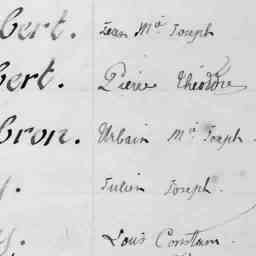 bert. Jean Mie Joseph
bert. Pierre Théodore
bron. Urbain Mie Joseph.
Julien Joseph.
s. Louis Constan